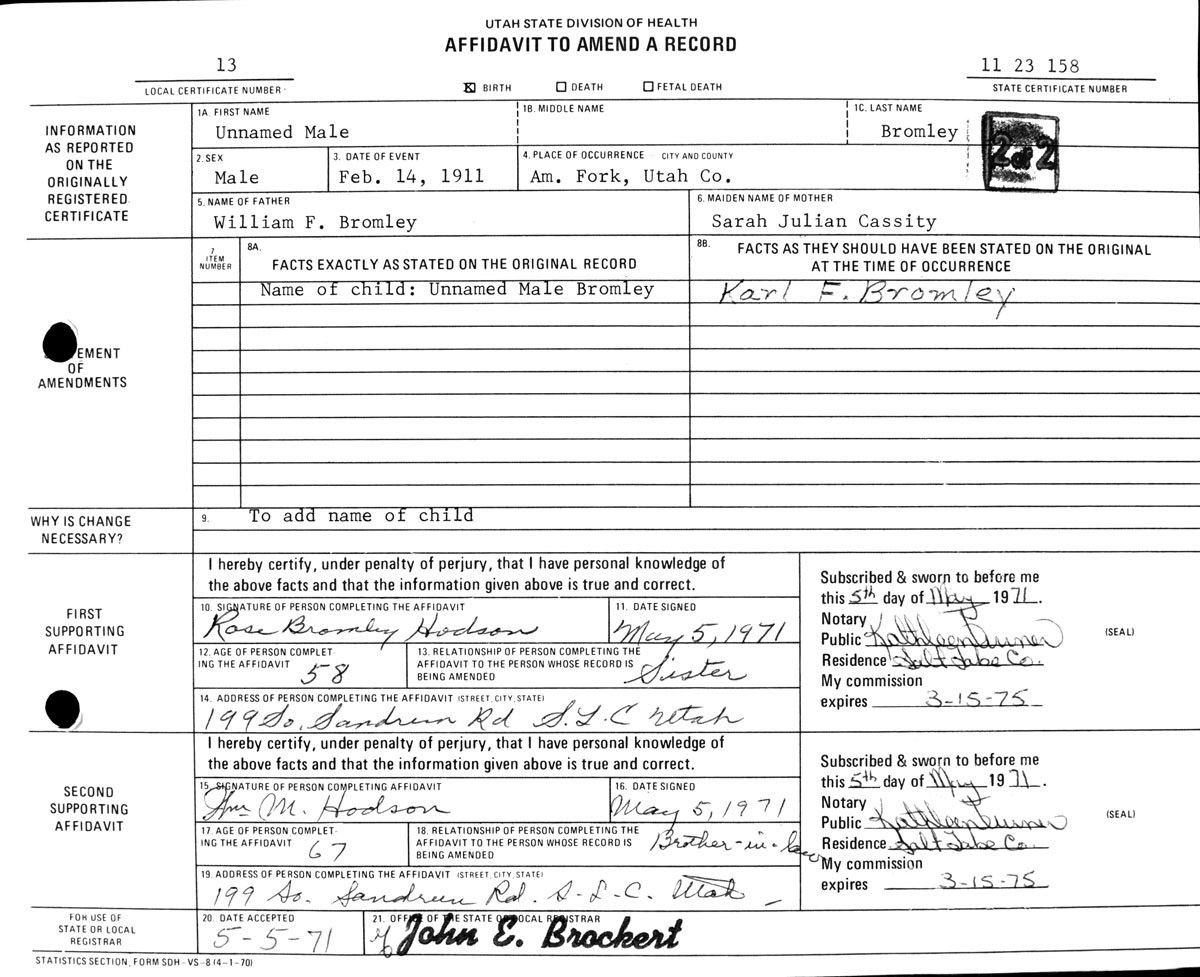 UTAH STATE DIVISION OF HEALTH
AFFIDAVIT TO AMEND A RECORD
13
LOCAL CERTIFICATE NUMBER
☒ BIRTH ☐ DEATH ☐ FETAL DEATH
11 23 158
STATE CERTIFICATE NUMBER
INFORMATION
AS REPORTED
ON THE
ORIGINALLY
REGISTERED
CERTIFICATE
1A. FIRST NAME
Unnamed Male
1B. MIDDLE NAME
1C. LAST NAME
Bromley
2 of 2
2. SEX
Male
3. DATE OF EVENT
Feb. 14, 1911
4. PLACE OF OCCURRENCE – CITY AND COUNTY
Am. Fork, Utah Co.
5. NAME OF FATHER
William F. Bromley
6. MAIDEN NAME OF MOTHER
Sarah Julian Cassity
EMENT
OF
AMENDMENTS
7
ITEM
NUMBER
8A.
FACTS EXACTLY AS STATED ON THE ORIGINAL RECORD
8B. FACTS AS THEY SHOULD HAVE BEEN STATED ON THE ORIGINAL
AT THE TIME OF OCCURRENCE
Name of child: Unnamed Male Bromley
Karl F. Bromley
WHY IS CHANGE
NECESSARY?
9. To add name of child
FIRST
SUPPORTING
AFFIDAVIT
I hereby certify, under penalty of perjury, that I have personal knowledge of
the above facts and that the information given above is true and correct.
10. SIGNATURE OF PERSON COMPLETING THE AFFIDAVIT
Rose Bromley Hodson
11. DATE SIGNED
May 5, 1971
12. AGE OF PERSON COMPLET-
ING THE AFFIDAVIT
58
13. RELATIONSHIP OF PERSON COMPLETING THE
AFFIDAVIT TO THE PERSON WHOSE RECORD IS
BEING AMENDED
Sister
14. ADDRESS OF PERSON COMPLETING THE AFFIDAVIT (STREET, CITY, STATE)
199 So. Sandrun Rd S.L.C Utah
Subscribed & sworn to before me
this 5th day of May 1971.
Notary
Public Kathleen
Residence Salt Lake Co.
My commission
expires 3-15-75
(SEAL)
SECOND
SUPPORTING
AFFIDAVIT
I hereby certify, under penalty of perjury, that I have personal knowledge of
the above facts and that the information given above is true and correct.
15. SIGNATURE OF PERSON COMPLETING AFFIDAVIT
Wm M. Hodson
16. DATE SIGNED
May 5, 1971
17. AGE OF PERSON COMPLET-
ING THE AFFIDAVIT
67
18. RELATIONSHIP OF PERSON COMPLETING THE
AFFIDAVIT TO THE PERSON WHOSE RECORD IS
BEING AMENDED
Brother-in-law
19. ADDRESS OF PERSON COMPLETING THE AFFIDAVIT (STREET, CITY, STATE)
199 So. Sandrun Rd. S-L-C. Utah
Subscribed & sworn to before me
this 5th day of May 1971.
Notary
Public Kathleen
Residence Salt Lake Co.
My commission
expires 3-15-75
(SEAL)
FOR USE OF
STATE OR LOCAL
REGISTRAR
20. DATE ACCEPTED
5-5-71
21. OFFICE OF THE STATE OR LOCAL REGISTRAR
John E. Brockert
STATISTICS SECTION, FORM SDH - VS - 8 (4-1-70)